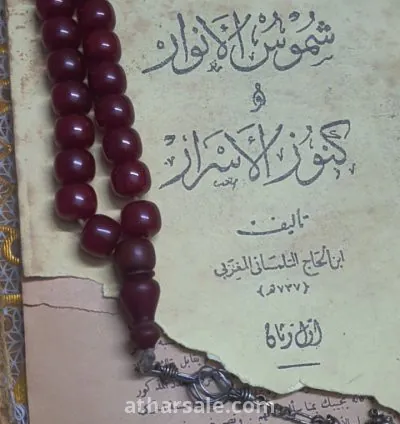 شموس الأنوار
و
كنوز الأسرار
تأليف
ابن الحاج التلمساني المغربي
(٧٣٧هـ)
atharsale.com